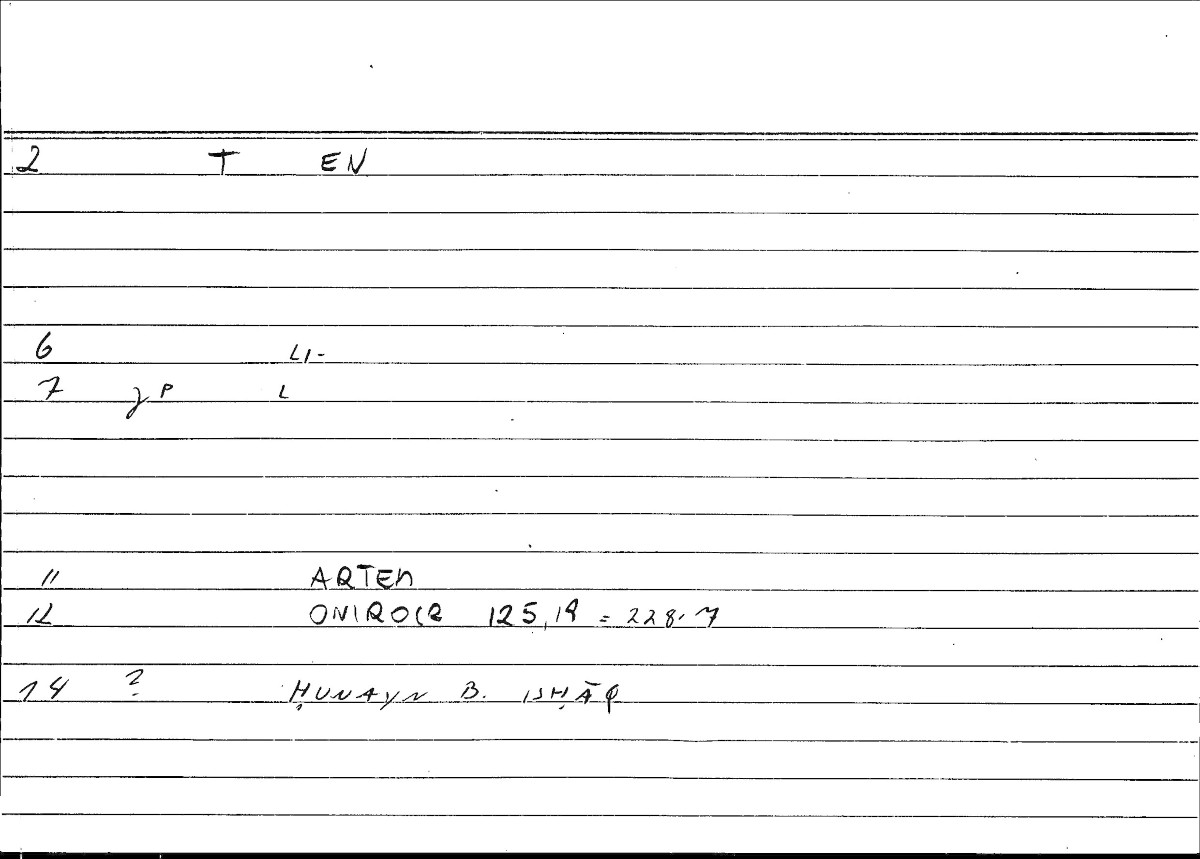 2 T EN
6 LI-
7 γρ L
11 ARTEM
12 ONIROCR 125,19 = 228.7
14 ? ḤUNAYN B. ISḤĀQ